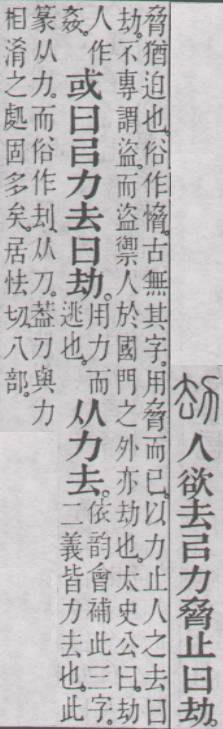 劫 人欲去㠯力脅止曰劫。
脅猶迫也。俗作愶。古無其字。用脅而已。以力止人之去曰
劫。不專謂盜。而盜禦人於國門之外亦劫也。太史公曰。劫
人作
姦。
或曰㠯力去曰劫。
用力而
逃也。
从力去。
依韵會補此三字。
二義皆力去也。此
篆从力。而俗作刦。从刀。葢刀與力
相淆之處固多矣。居怯切。八部。